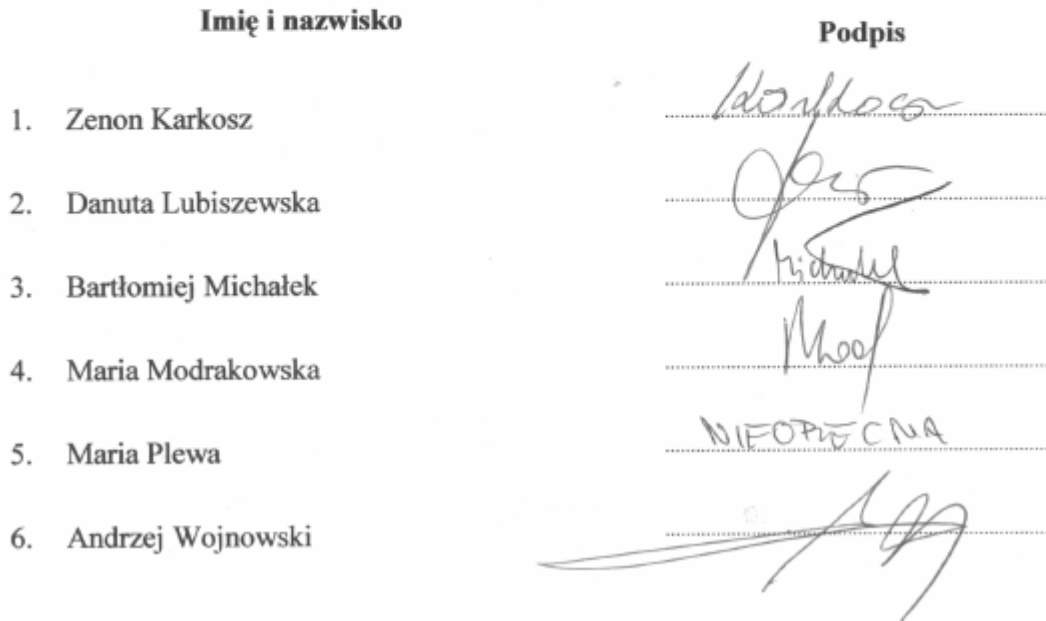 Imię i nazwisko Podpis
1. Zenon Karkosz
2. Danuta Lubiszewska
3. Bartłomiej Michałek
4. Maria Modrakowska
5. Maria Plewa NIEOBECNA
6. Andrzej Wojnowski